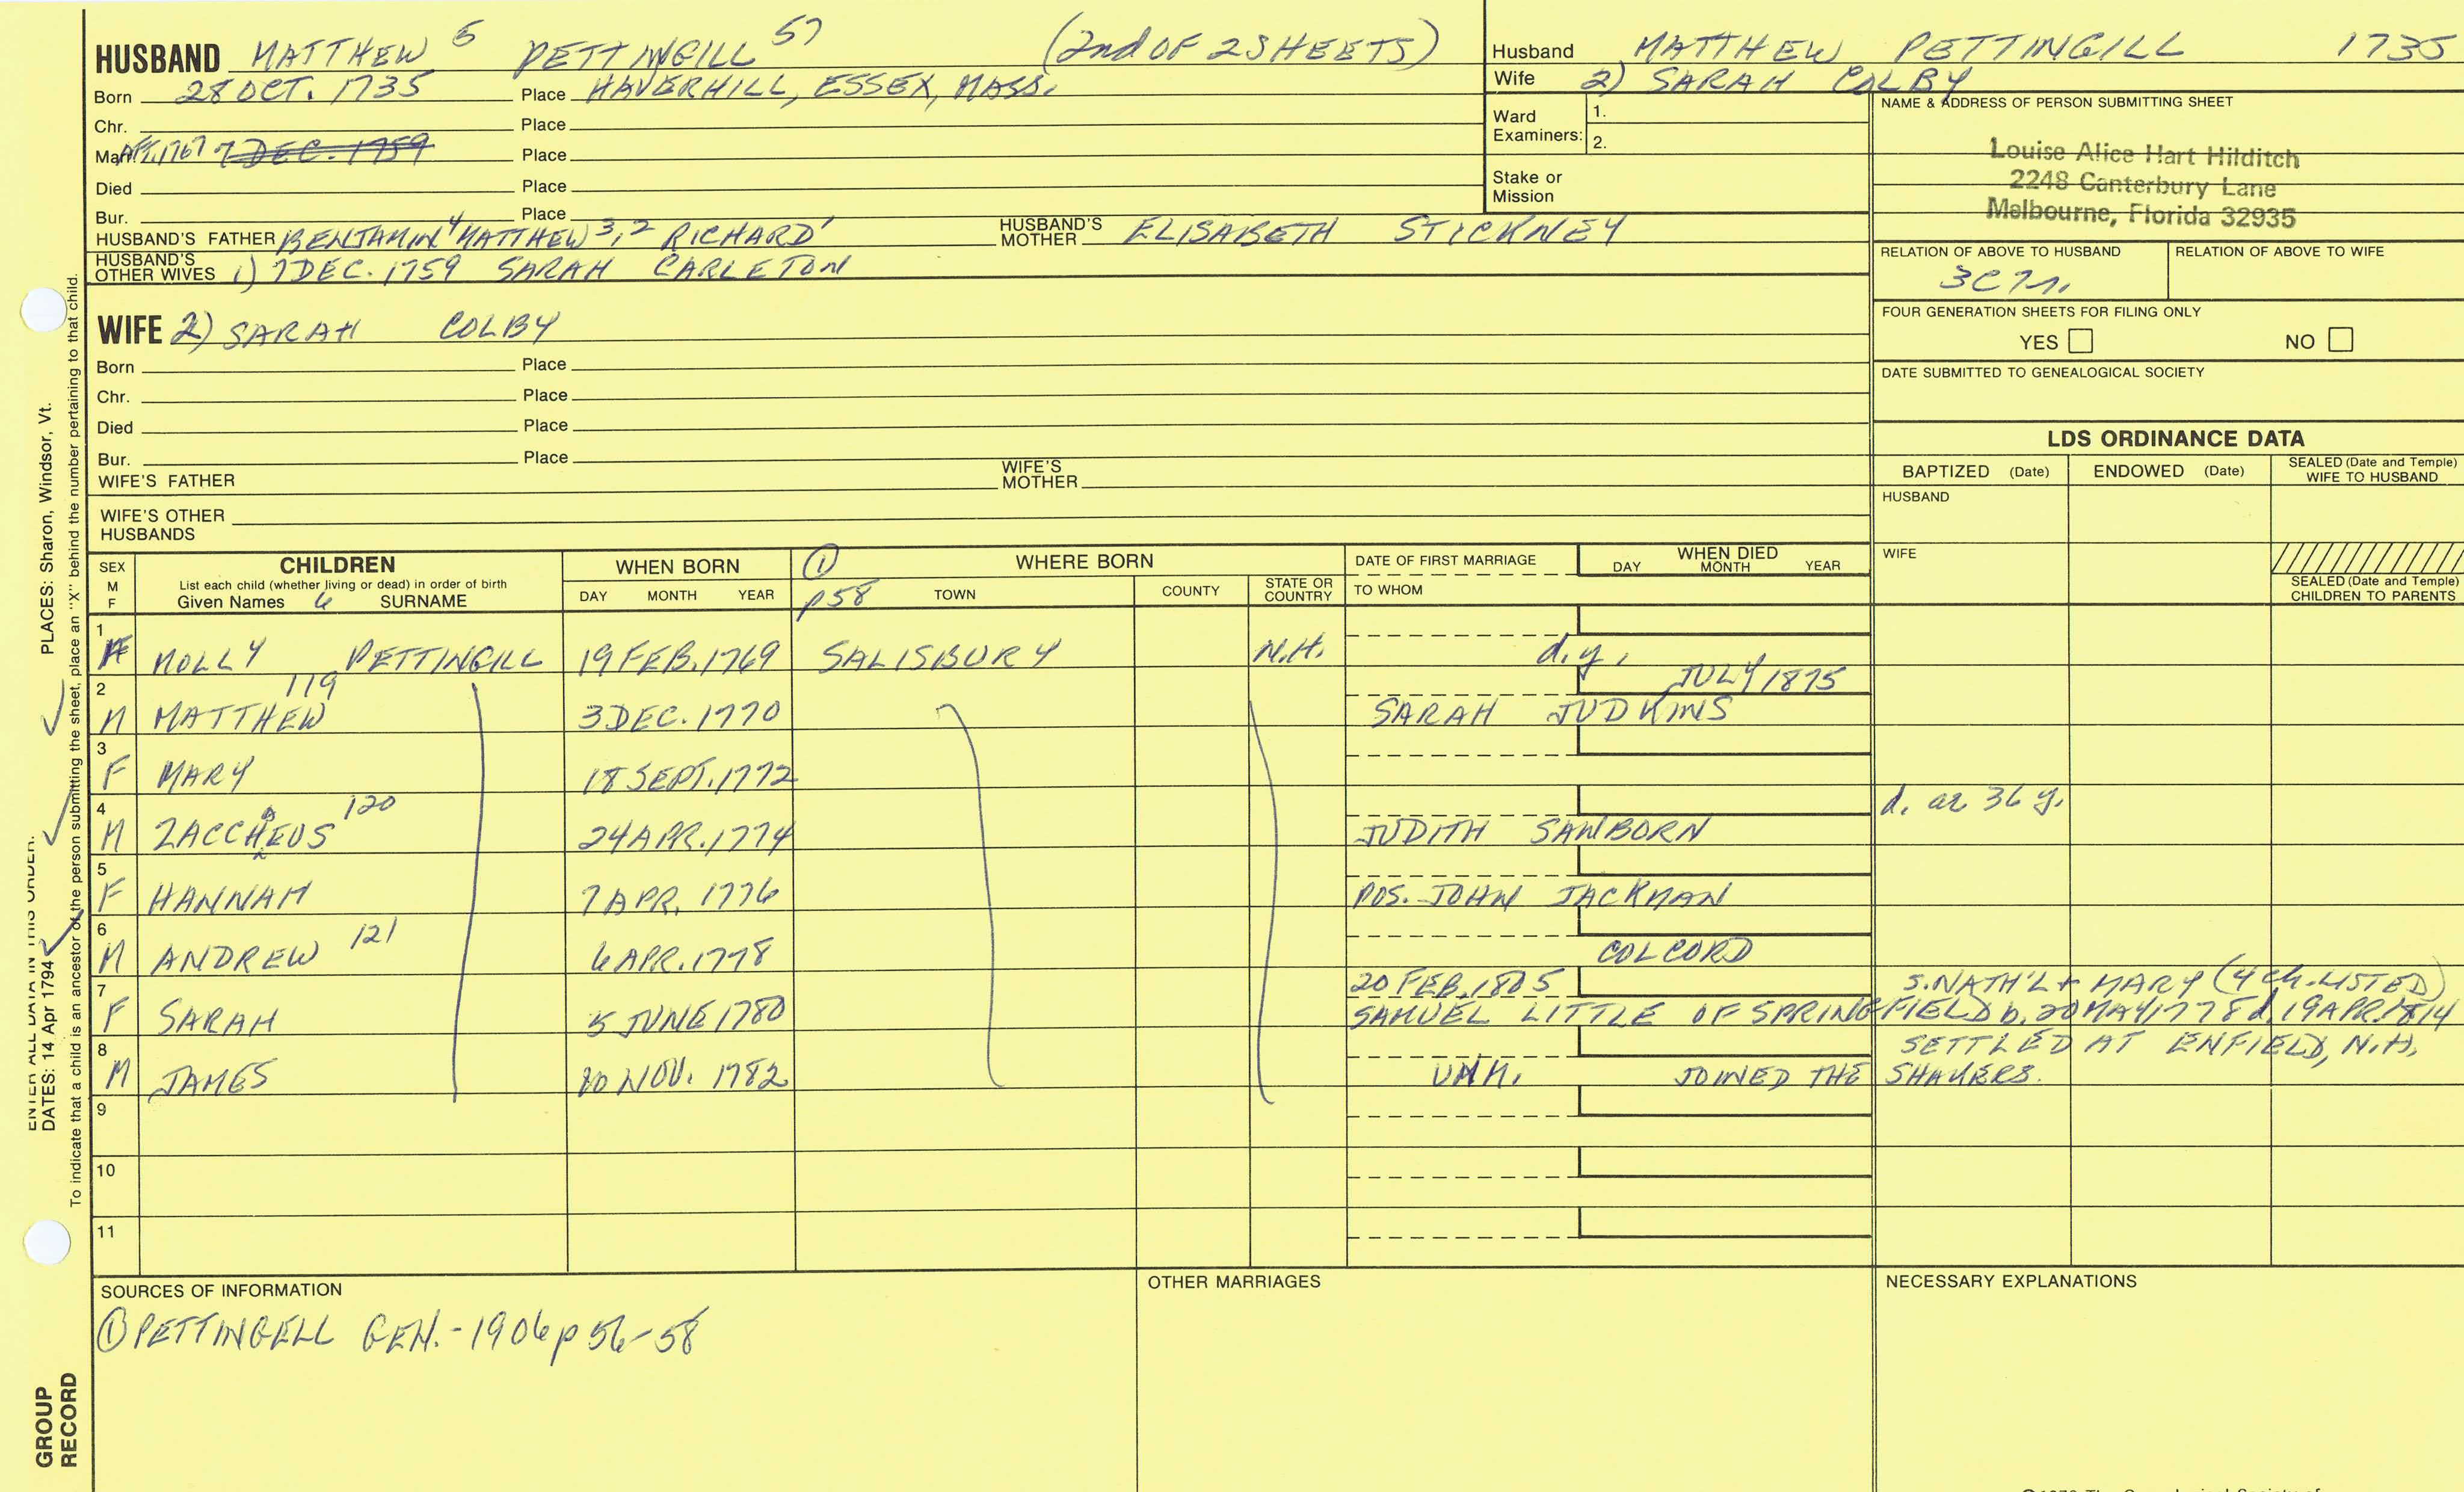 HUSBAND MATTHEW 5 PETTINGILL 57 (2nd OF 2 SHEETS)
Born 28 OCT. 1735 Place HAVERHILL, ESSEX, MASS.
Chr. Place
Marr. APR. 1767 7 DEC. 1759 Place
Died Place
Bur. Place
HUSBAND'S FATHER BENJAMIN 4 MATTHEW 3,2 RICHARD 1 HUSBAND'S MOTHER ELISABETH STICKNEY
HUSBAND'S OTHER WIVES 1) 7 DEC. 1759 SARAH CARLETON
WIFE 2) SARAH COLBY
Born Place
Chr. Place
Died Place
Bur. Place
WIFE'S FATHER WIFE'S MOTHER
WIFE'S OTHER HUSBANDS
Husband MATTHEW PETTINGILL 1735
Wife 2) SARAH COLBY
Ward Examiners: 1.
2.
Stake or Mission
NAME & ADDRESS OF PERSON SUBMITTING SHEET
Louise Alice Hart Hilditch
2248 Canterbury Lane
Melbourne, Florida 32935
RELATION OF ABOVE TO HUSBAND RELATION OF ABOVE TO WIFE
3C7r.
FOUR GENERATION SHEETS FOR FILING ONLY
YES NO
DATE SUBMITTED TO GENEALOGICAL SOCIETY
LDS ORDINANCE DATA
BAPTIZED (Date) ENDOWED (Date) SEALED (Date and Temple) WIFE TO HUSBAND
HUSBAND
WIFE
SEALED (Date and Temple) CHILDREN TO PARENTS
SEX M F CHILDREN
List each child (whether living or dead) in order of birth
Given Names 6 SURNAME
WHEN BORN
DAY MONTH YEAR
1 WHERE BORN
p58 TOWN COUNTY STATE OR COUNTRY
DATE OF FIRST MARRIAGE
TO WHOM
WHEN DIED
DAY MONTH YEAR
1 F MOLLY PETTINGILL 19 FEB. 1769 SALISBURY N.H. d.y.
2 M MATTHEW 119 3 DEC. 1770 SARAH JUDKINS JULY 1875
3 F MARY 18 SEPT. 1772
4 M ZACCHEUS 120 24 APR. 1774 JUDITH SANBORN d. ae 36 y.
5 F HANNAH 7 APR. 1776 POS. JOHN JACKMAN
6 M ANDREW 121 6 APR. 1778 COLCORD
7 F SARAH 5 JUNE 1780 20 FEB. 1805 S. NATH'L + MARY (4 ch. LISTED)
SAMUEL LITTLE OF SPRINGFIELD b. 20 MAY 1778 d. 19 APR. 1814
SETTLED AT ENFIELD, N.H.
8 M JAMES 20 NOV. 1782 UNM. JOINED THE SHAKERS.
9
10
11
SOURCES OF INFORMATION
1 PETTINGELL GEN. - 1906 p 56-58
OTHER MARRIAGES
NECESSARY EXPLANATIONS
ENTER ALL DATA IN THIS ORDER:
DATES: 14 Apr 1794 PLACES: Sharon, Windsor, Vt.
To indicate that a child is an ancestor of the person submitting the sheet, place an "X" behind the number pertaining to that child.
GROUP
RECORD